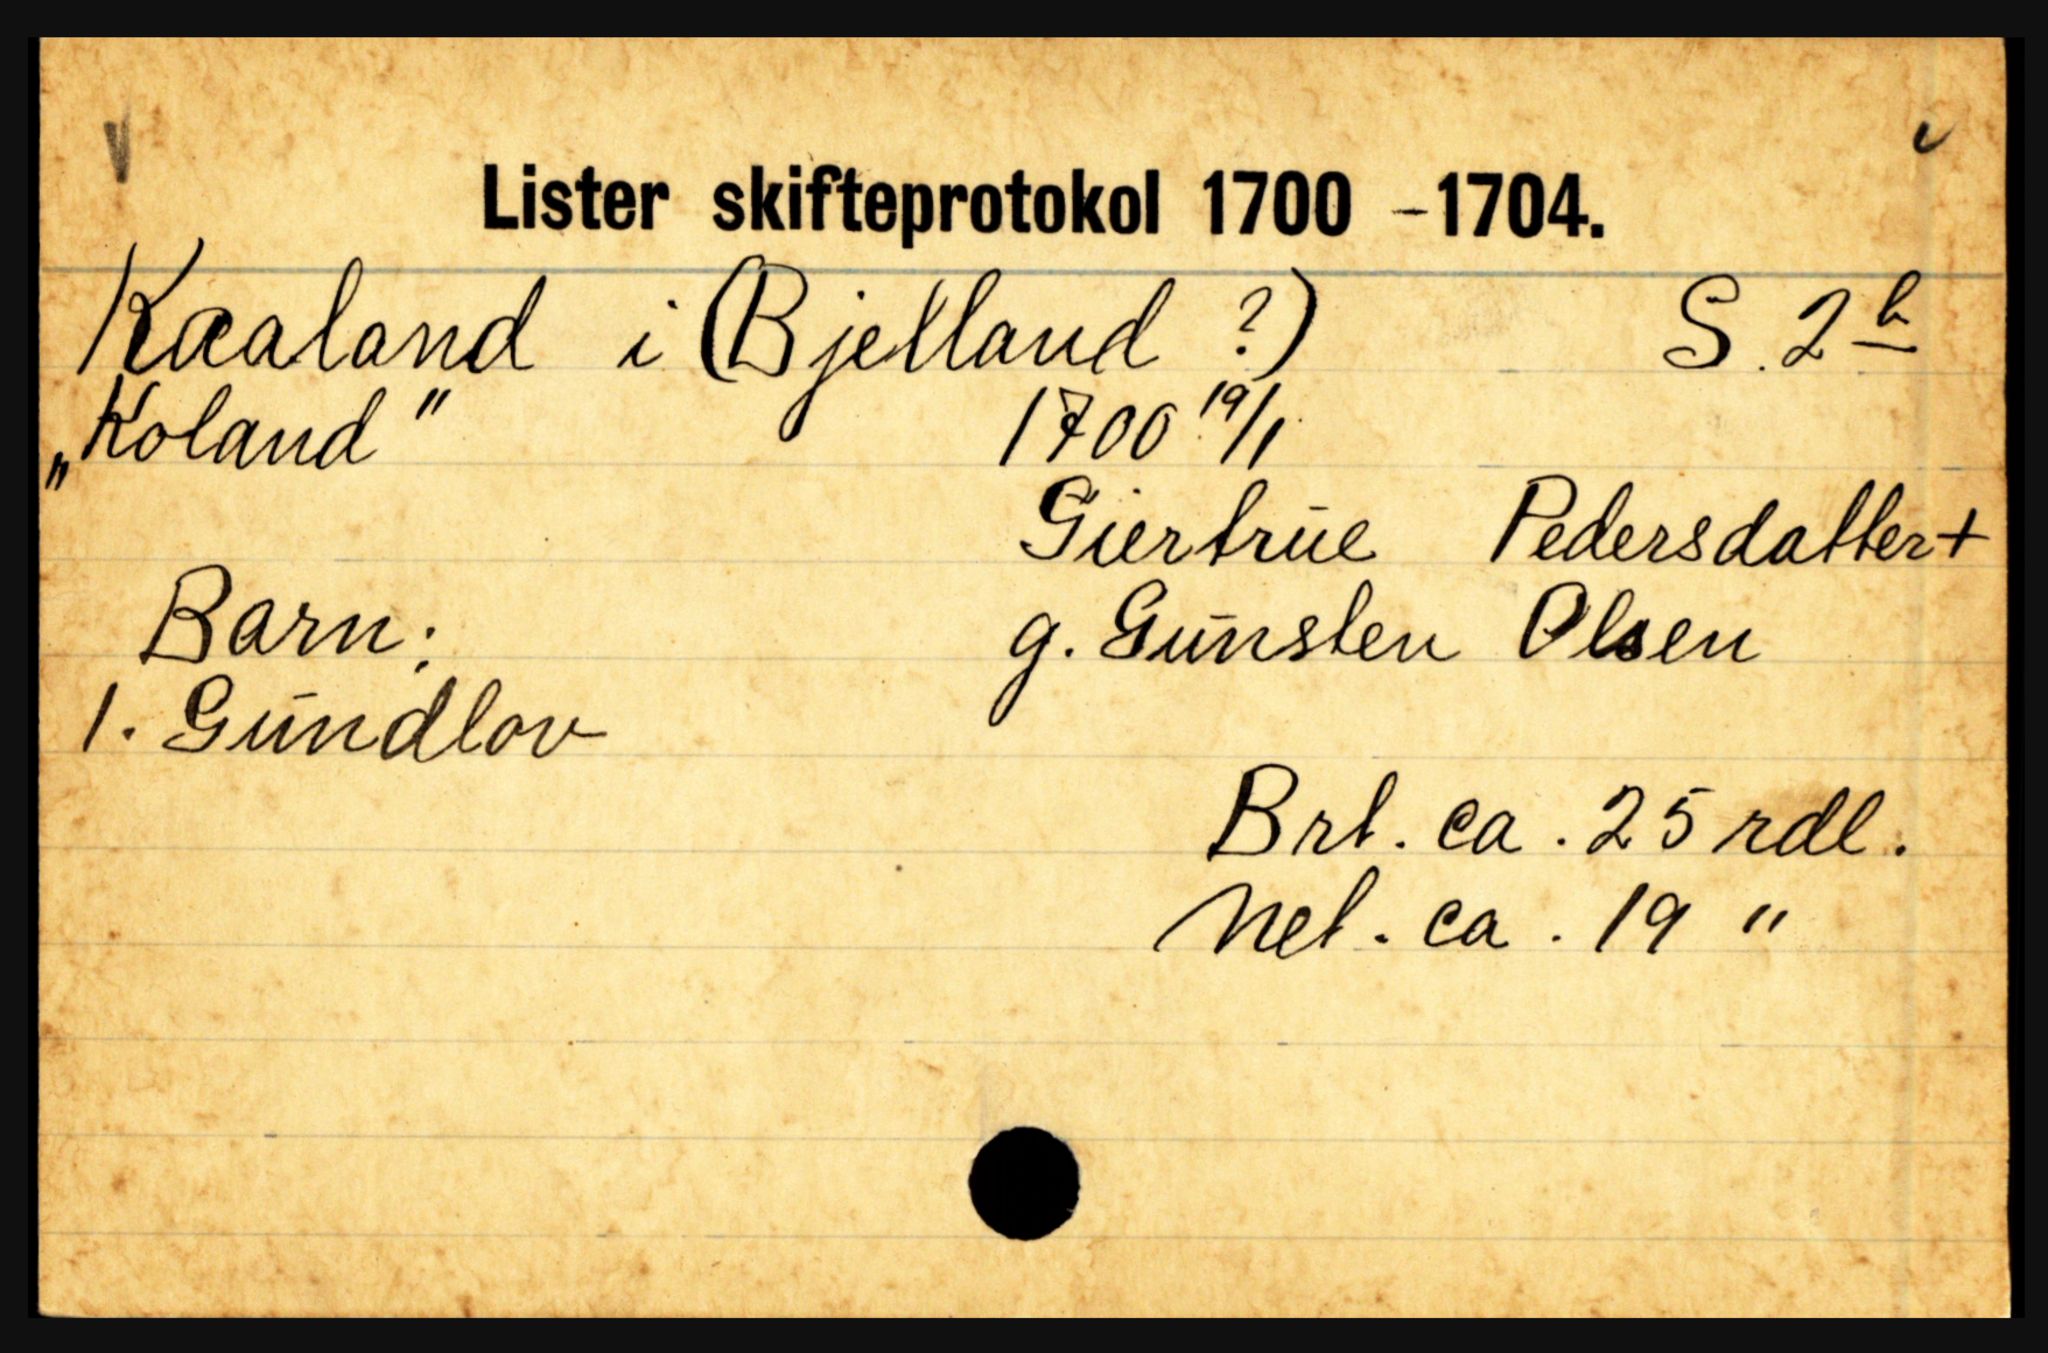 Lister skifteprotokol 1700 - 1704.
Kaaland i (Bjelland ?) S. 2 b
„Koland" 1700 19/1
Giertrūe Pedersdatter +
Barn: g. Gūnsten Olsen
1. Gūndlov
Brt. ca. 25 rdl.
Net. ca. 19 "